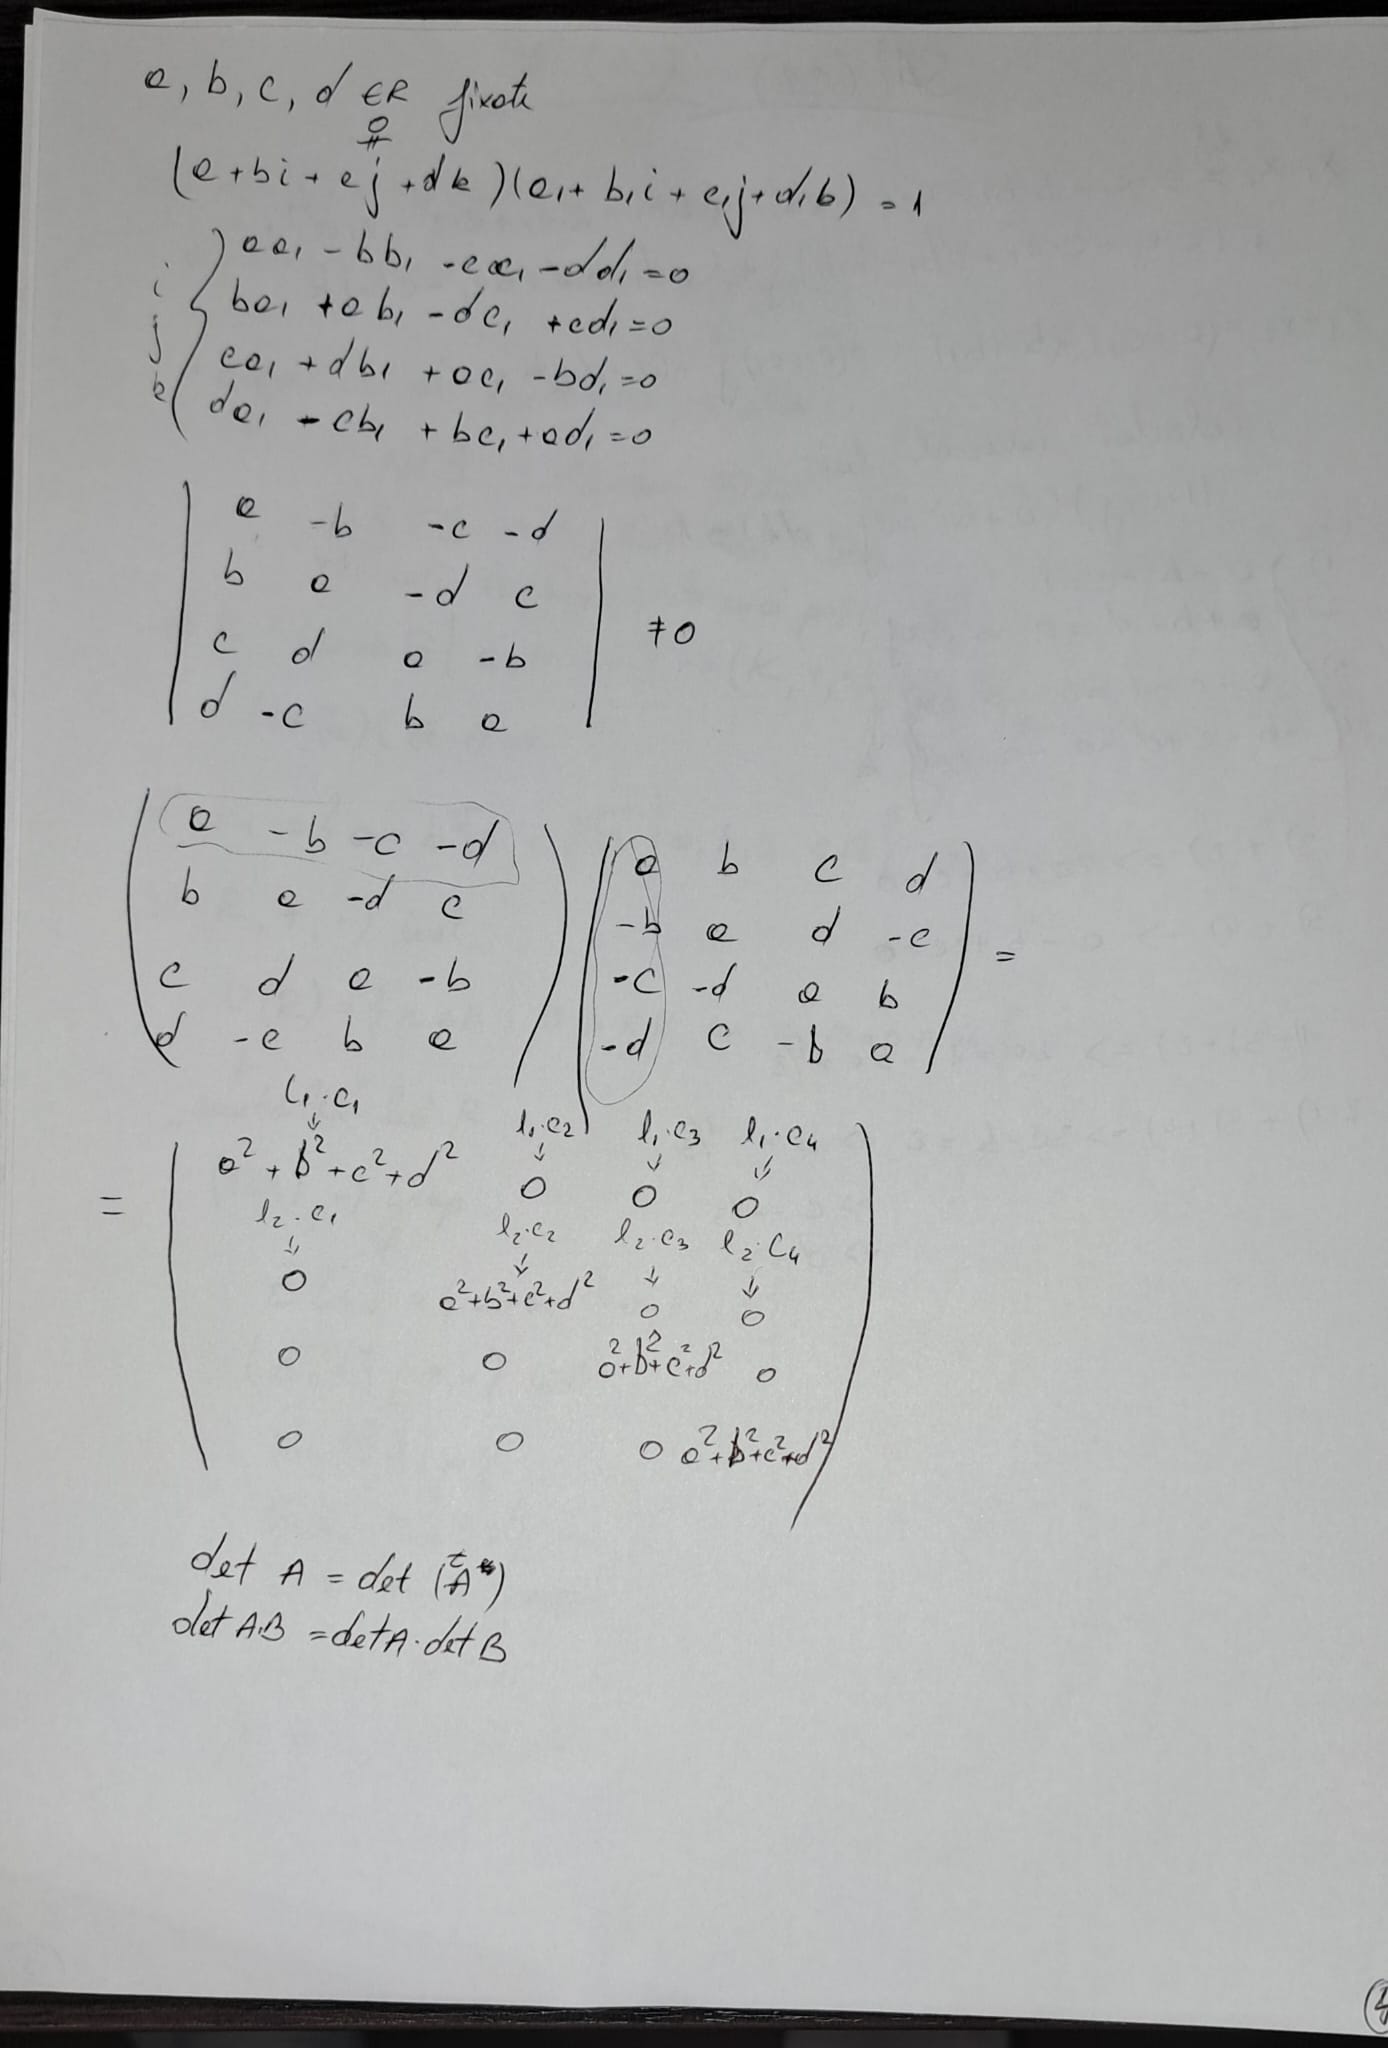 a, b, c, d ∈ R fixate
≠
0
(a + bi + cj + dk)(a₁ + b₁i + c₁j + d₁k) = 1
aa₁ - bb₁ - cc₁ - dd₁ = 0
i ba₁ + ab₁ - dc₁ + cd₁ = 0
j ca₁ + db₁ + ac₁ - bd₁ = 0
k da₁ - cb₁ + bc₁ + ad₁ = 0
a -b -c -d
b a -d c
c d a -b ≠ 0
d -c b a
a -b -c -d a b c d
b a -d c -b a d -c =
c d a -b -c -d a b
d -c b a -d c -b a
l₁·c₁ l₁·c₂ l₁·c₃ l₁·c₄
= a² + b² + c² + d² 0 0 0
l₂·c₁ l₂·c₂ l₂·c₃ l₂·c₄
0 a² + b² + c² + d² 0 0
0 0 a² + b² + c² + d² 0
0 0 0 a² + b² + c² + d²
det A = det (ᵗA)
det A·B = det A · det B
4